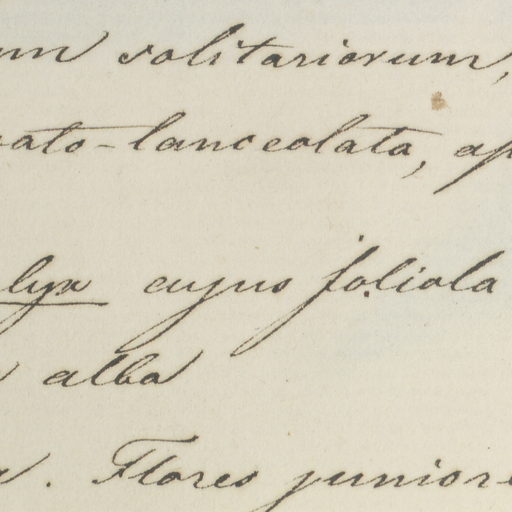 um solitariorum,
ato-lanceolata, ap
lyx cujus foliola
alba
Flores junior